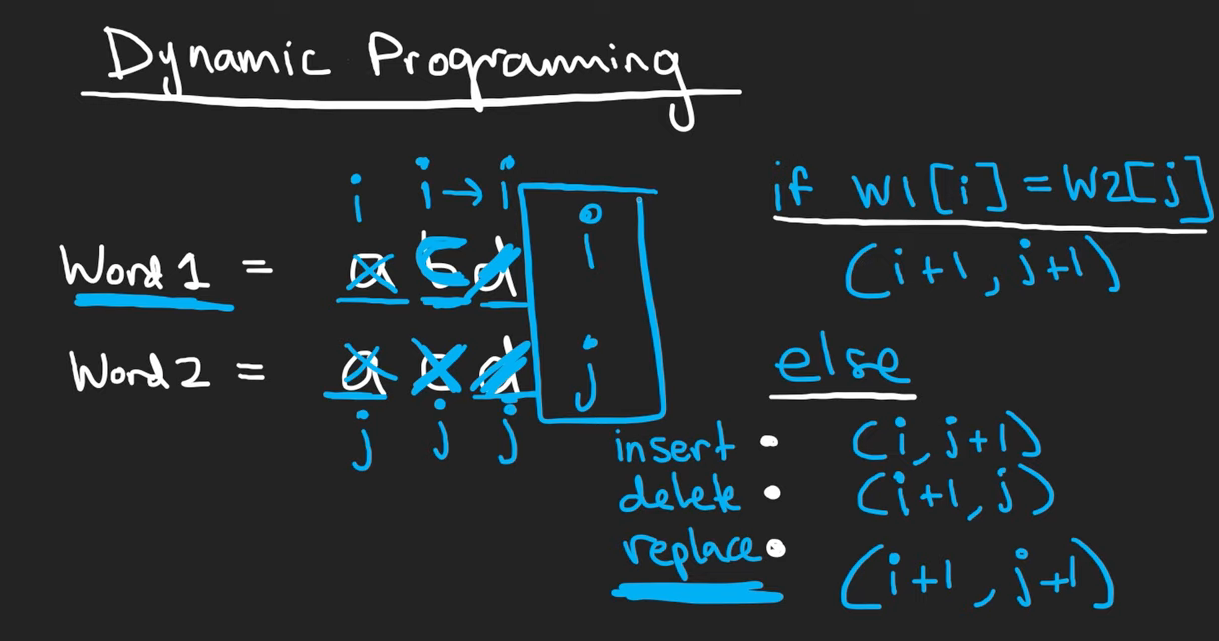 Dynamic Programming
i i → i i
Word 1 = a b d
Word 2 = a c d
j j j j
if W1[i] = W2[j]
(i+1, j+1)
else
insert • (i, j+1)
delete • (i+1, j)
replace • (i+1, j+1)